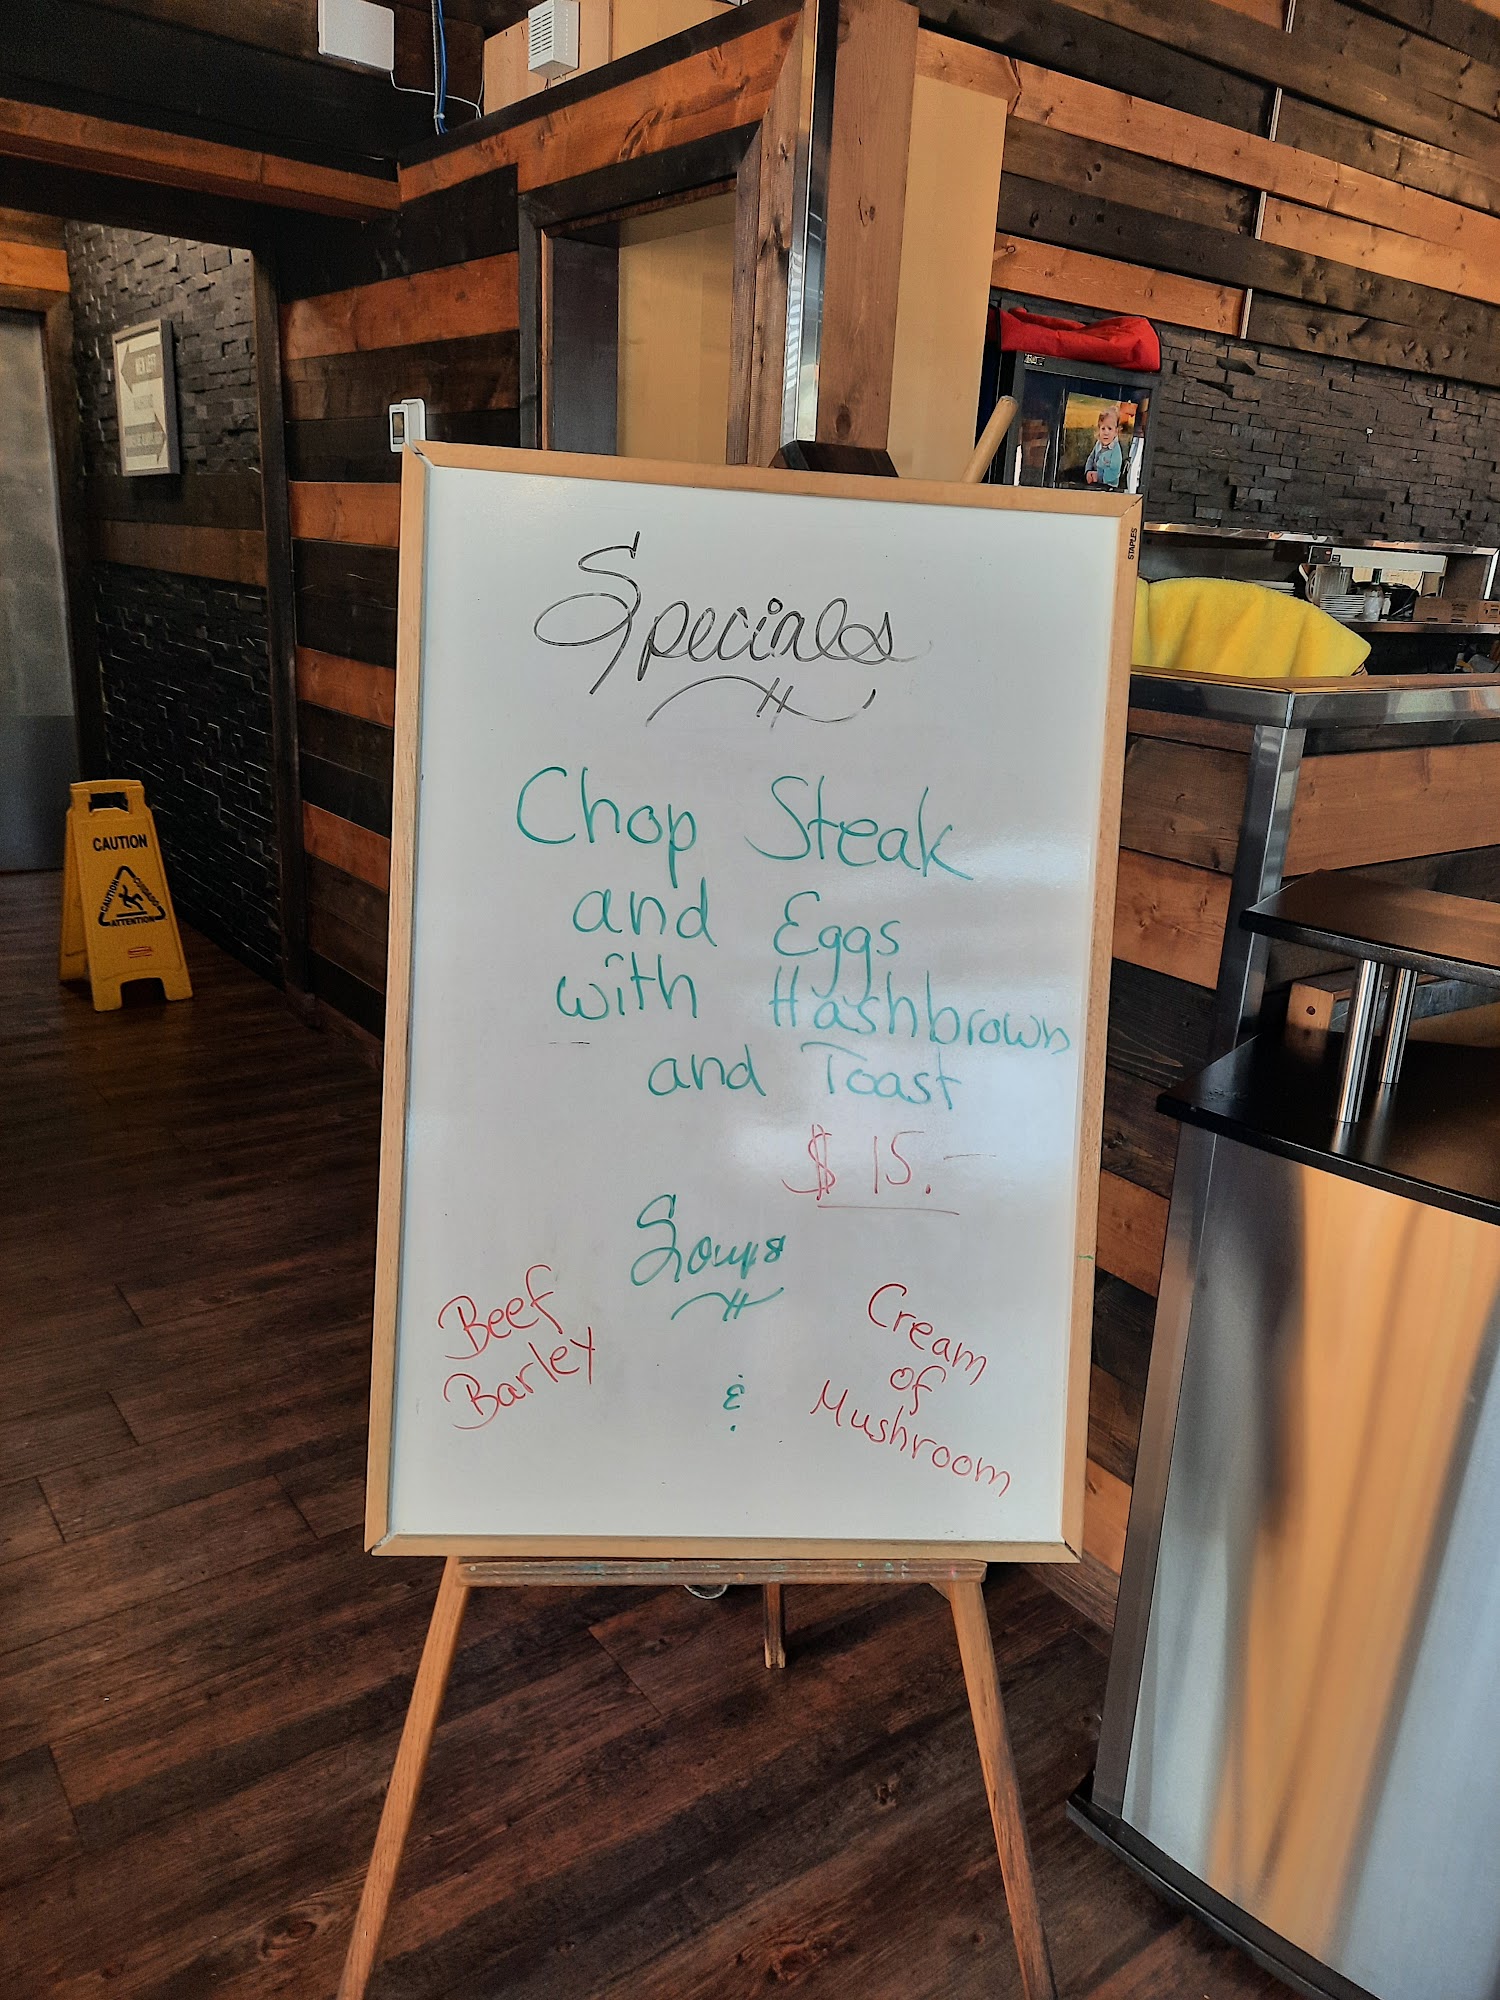 MEN LEFT
STAPLES
Specials
Chop Steak
and Eggs
with Hashbrown
and Toast
$ 15.—
Soups
Beef
Barley
&
Cream
of
Mushroom
CAUTION
CAUTION
CUIDADO
ATTENTION